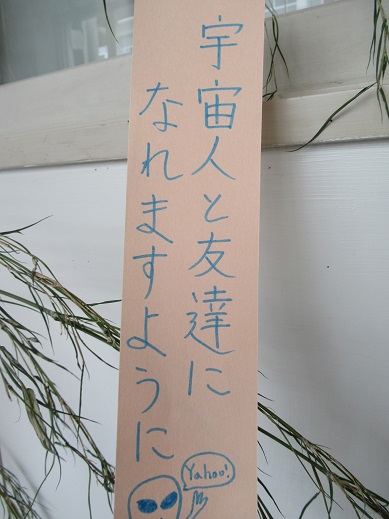 宇宙人と友達に
なれますように
Yahoo!